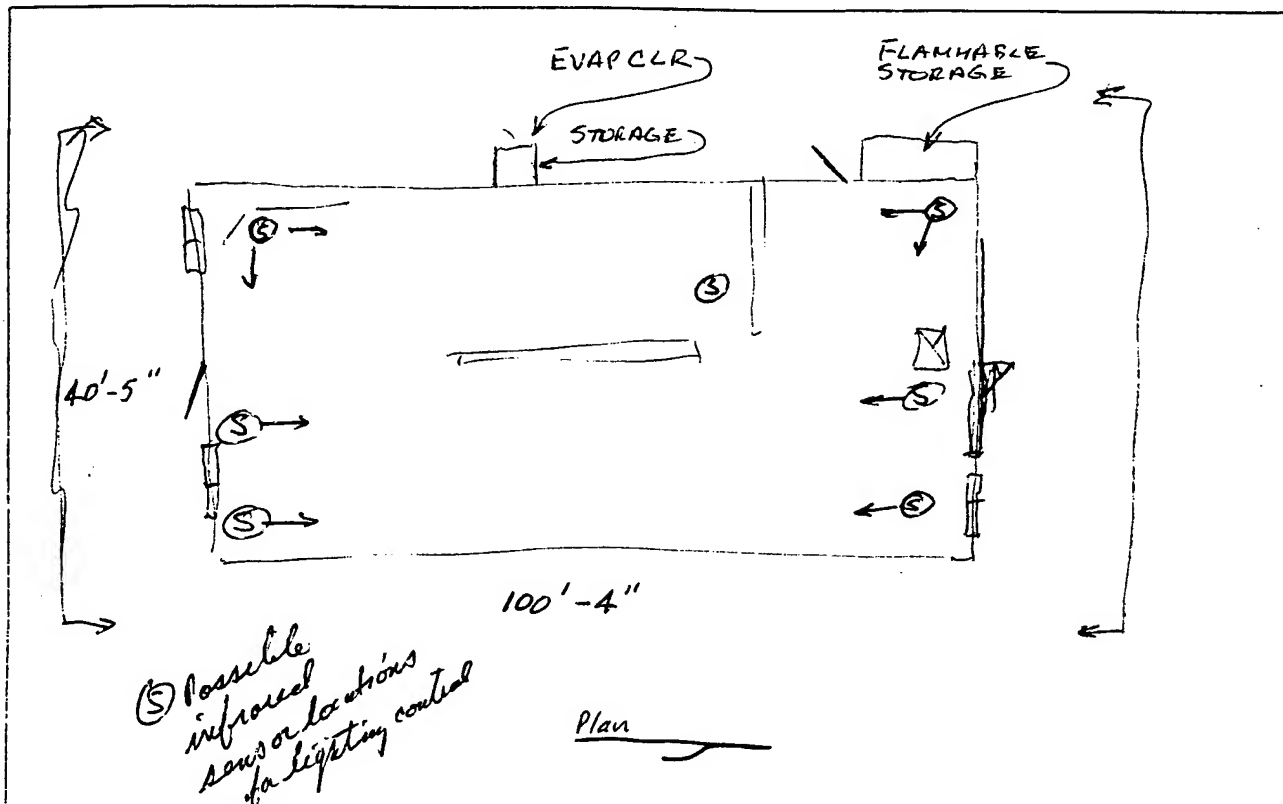 EVAP CLR
FLAMMABLE
STORAGE
STORAGE
S
S
S
40'-5"
S
S
S
S
100'-4"
Ⓢ Possible
infrared
sensor locations
for lighting control
Plan